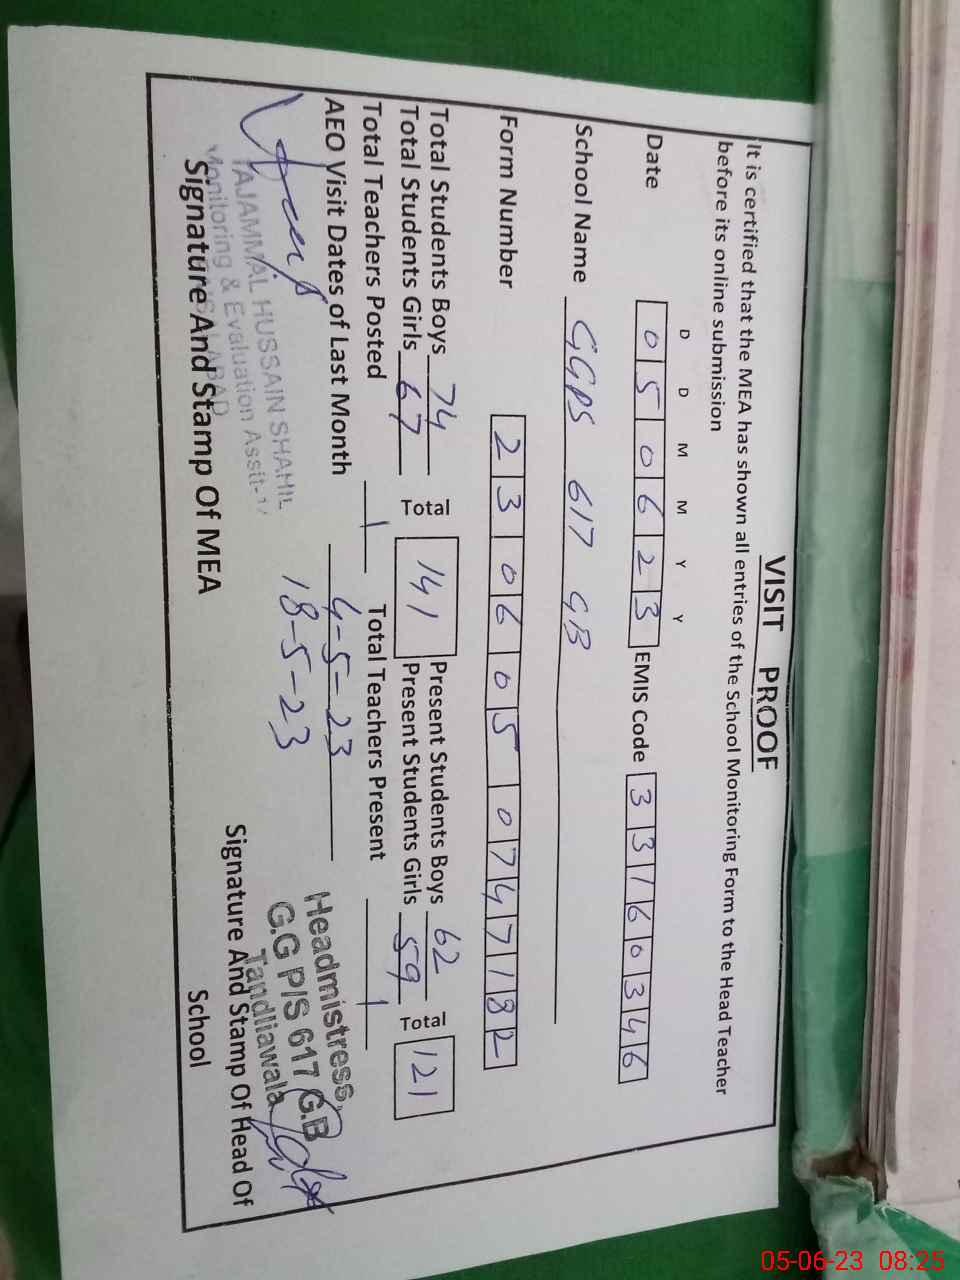 VISIT PROOF
It is certified that the MEA has shown all entries of the School Monitoring Form to the Head Teacher
before its online submission
D D M M Y Y
Date 0 5 0 6 2 3 EMIS Code 3 3 1 6 0 3 4 6
School Name GGPS 617 GB
Form Number 2 3 0 6 0 5 0 7 4 7 1 8 2
Total Students Boys 74 Present Students Boys 62
Total 141 Total 121
Total Students Girls 67 Present Students Girls 59
Total Teachers Posted 1 Total Teachers Present 1
AEO Visit Dates of Last Month 4-5-23
18-5-23
TAJAMMAL HUSSAIN SHAHIL
Monitoring & Evaluation Assit-1
Signature And Stamp Of MEA
Headmistress,
G.G P/S 617 G.B
Tandliawala
Signature And Stamp Of Head Of
School
05-06-23 08:25